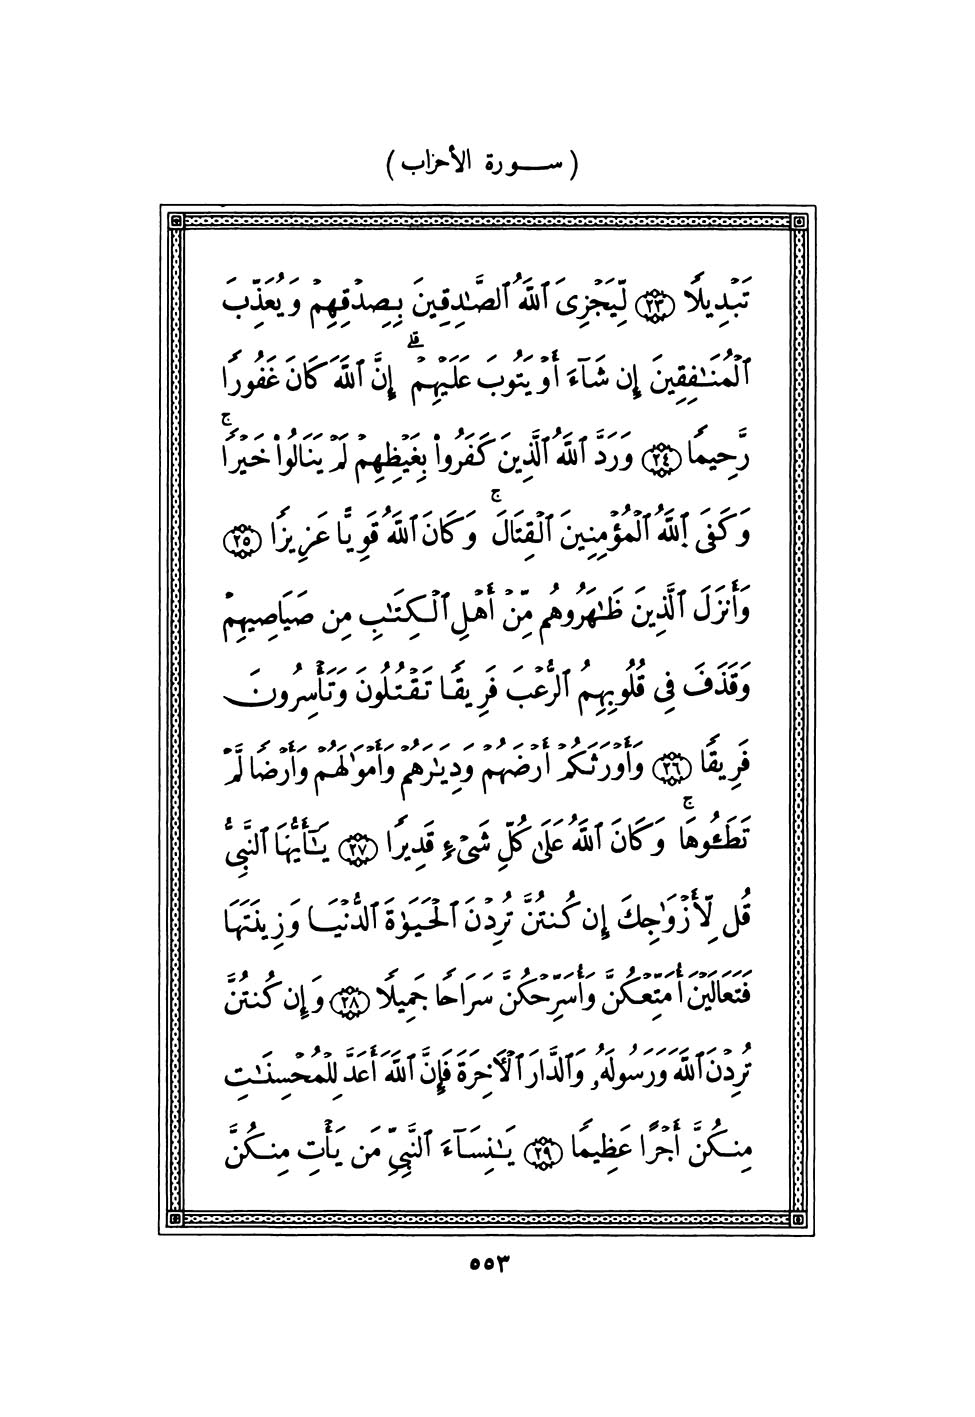 ( سورة الأحزاب )
تَبْدِيلًا ٢٣ لِّيَجْزِىَ ٱللَّهُ ٱلصَّـٰدِقِينَ بِصِدْقِهِمْ وَيُعَذِّبَ
ٱلْمُنَـٰفِقِينَ إِن شَآءَ أَوْ يَتُوبَ عَلَيْهِمْ ۚ إِنَّ ٱللَّهَ كَانَ غَفُورًا
رَّحِيمًا ٢٤ وَرَدَّ ٱللَّهُ ٱلَّذِينَ كَفَرُوا۟ بِغَيْظِهِمْ لَمْ يَنَالُوا۟ خَيْرًا ۚ
وَكَفَى ٱللَّهُ ٱلْمُؤْمِنِينَ ٱلْقِتَالَ ۚ وَكَانَ ٱللَّهُ قَوِيًّا عَزِيزًا ٢٥
وَأَنزَلَ ٱلَّذِينَ ظَـٰهَرُوهُم مِّنْ أَهْلِ ٱلْكِتَـٰبِ مِن صَيَاصِيهِمْ
وَقَذَفَ فِى قُلُوبِهِمُ ٱلرُّعْبَ فَرِيقًا تَقْتُلُونَ وَتَأْسِرُونَ
فَرِيقًا ٢٦ وَأَوْرَثَكُمْ أَرْضَهُمْ وَدِيَـٰرَهُمْ وَأَمْوَٰلَهُمْ وَأَرْضًا لَّمْ
تَطَـُٔوهَا ۚ وَكَانَ ٱللَّهُ عَلَىٰ كُلِّ شَىْءٍ قَدِيرًا ٢٧ يَـٰٓأَيُّهَا ٱلنَّبِىُّ
قُل لِّأَزْوَٰجِكَ إِن كُنتُنَّ تُرِدْنَ ٱلْحَيَوٰةَ ٱلدُّنْيَا وَزِينَتَهَا
فَتَعَالَيْنَ أُمَتِّعْكُنَّ وَأُسَرِّحْكُنَّ سَرَاحًا جَمِيلًا ٢٨ وَإِن كُنتُنَّ
تُرِدْنَ ٱللَّهَ وَرَسُولَهُۥ وَٱلدَّارَ ٱلْـَٔاخِرَةَ فَإِنَّ ٱللَّهَ أَعَدَّ لِلْمُحْسِنَـٰتِ
مِنكُنَّ أَجْرًا عَظِيمًا ٢٩ يَـٰنِسَآءَ ٱلنَّبِىِّ مَن يَأْتِ مِنكُنَّ
٥٥٣